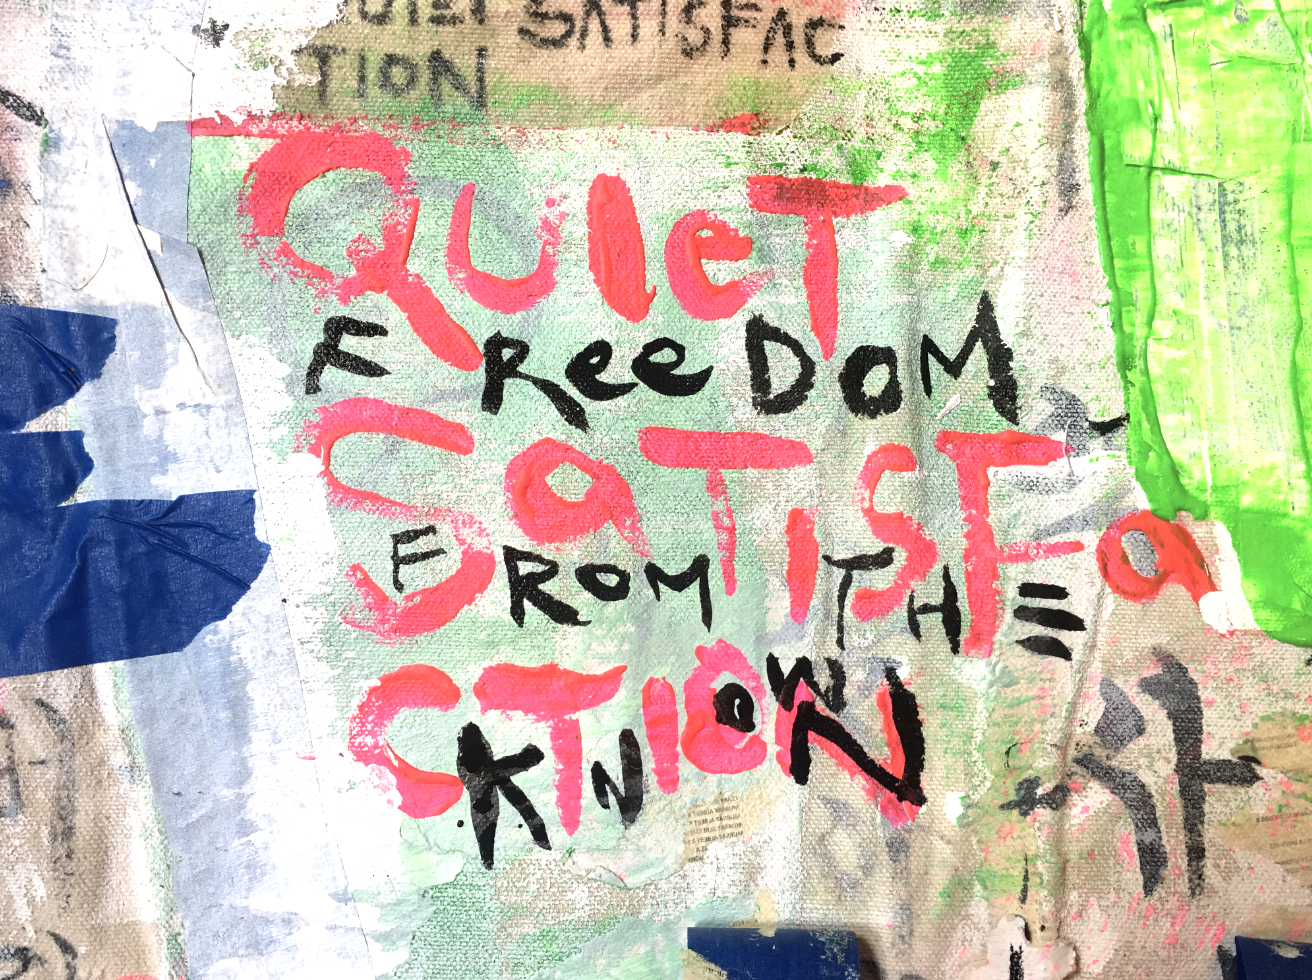 QUIET SATISFAC
TION
QUIeT
FReeDOM
SaTISFa
FROM THE
CTION
KNOWN